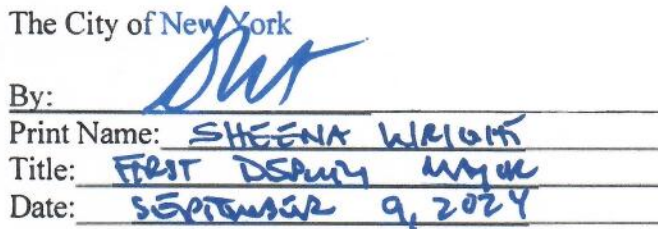 The City of New York
By:
Print Name: SHEENA WRIGHT
Title: FIRST DEPUTY MAYOR
Date: SEPTEMBER 9, 2024